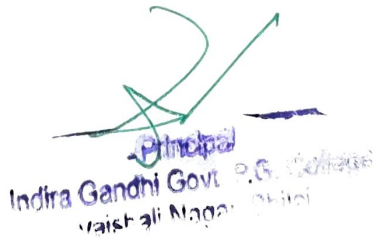 Principal
Indira Gandhi Govt. P.G. College
Vaishali Nagar Bhilai